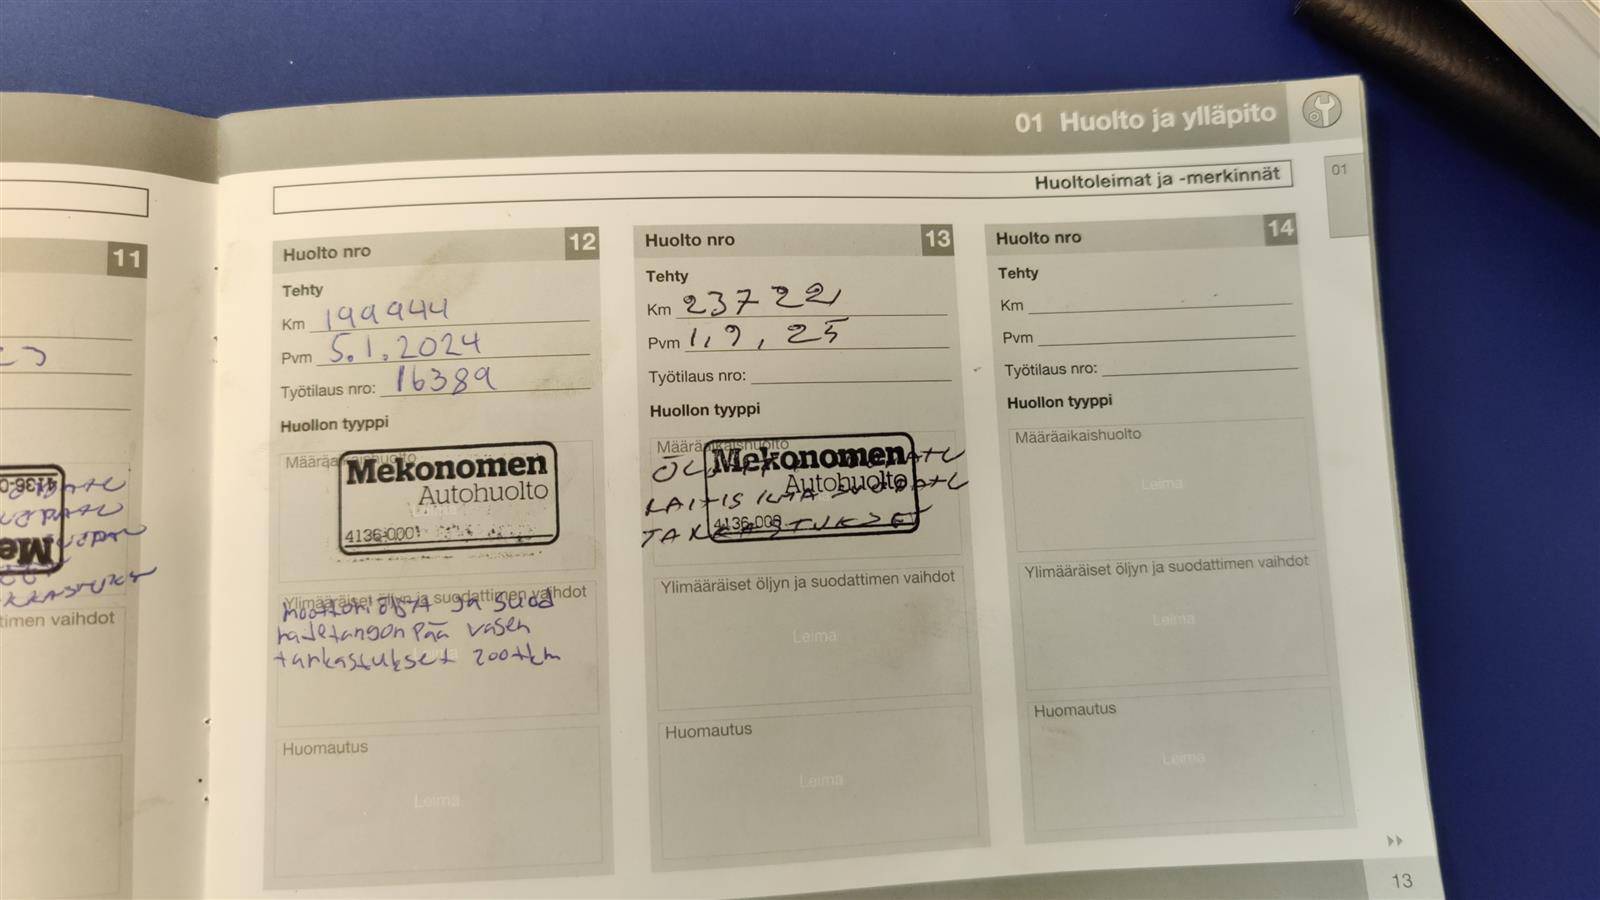 01 Huolto ja ylläpito
Huoltoleimat ja -merkinnät
01
11
timen vaihdot
Huolto nro 12
Tehty
Km 199944
Pvm 5.1.2024
Työtilaus nro: 16389
Huollon tyyppi
Määräaikaishuolto
Mekonomen
Autohuolto
4136-0001
Ylimääräiset öljyn ja suodattimen vaihdot
moottoriöljyt ja suod
raidetangonpää vasen
tarkastukset 200tkm
Leima
Huomautus
Leima
Huolto nro 13
Tehty
Km 23722
Pvm 1,9,25
Työtilaus nro:
Huollon tyyppi
Määräaikaishuolto
Mekonomen
Autohuolto
TARKASTUKSET
Ylimääräiset öljyn ja suodattimen vaihdot
Leima
Huomautus
Leima
Huolto nro 14
Tehty
Km
Pvm
Työtilaus nro:
Huollon tyyppi
Määräaikaishuolto
Leima
Ylimääräiset öljyn ja suodattimen vaihdot
Leima
Huomautus
Leima
13